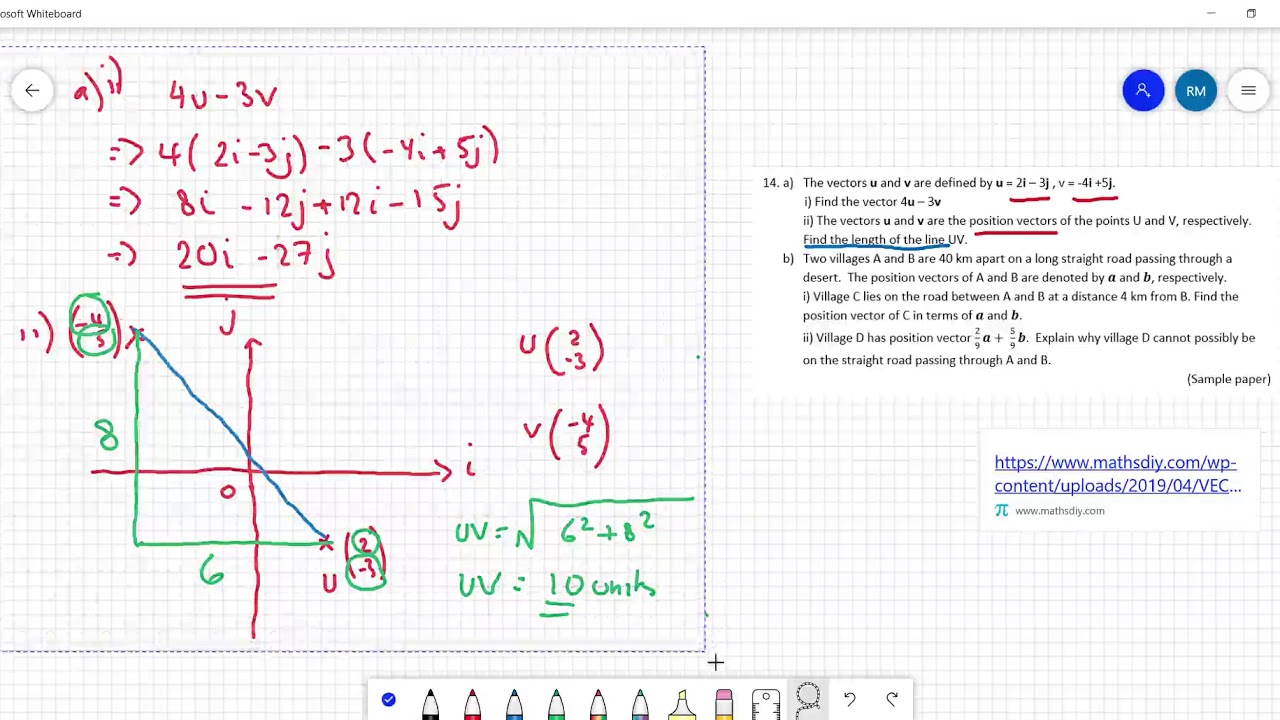 osoft Whiteboard
a)i) 4u - 3v
=> 4(2i - 3j) - 3(-4i + 5j)
=> 8i - 12j + 12i - 15j
=> 20i - 27j
ii) (-4 5)
j
8
i
0
6
U (2 -3)
U (2 -3)
V (-4 5)
UV = √6² + 8²
UV = 10 units
RM
14. a) The vectors u and v are defined by u = 2i – 3j , v = -4i +5j.
i) Find the vector 4u – 3v
ii) The vectors u and v are the position vectors of the points U and V, respectively.
Find the length of the line UV.
b) Two villages A and B are 40 km apart on a long straight road passing through a
desert. The position vectors of A and B are denoted by a and b, respectively.
i) Village C lies on the road between A and B at a distance 4 km from B. Find the
position vector of C in terms of a and b.
ii) Village D has position vector 2/9 a + 5/9 b. Explain why village D cannot possibly be
on the straight road passing through A and B.
(Sample paper)
https://www.mathsdiy.com/wp-
content/uploads/2019/04/VEC...
π www.mathsdiy.com